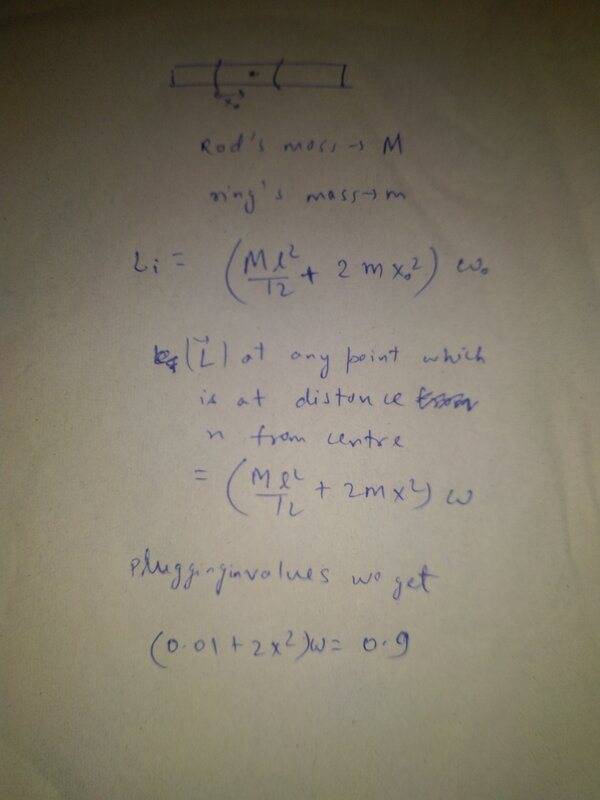 x₀
Rod's mass → M
ring's mass → m
Li = (Ml²/12 + 2mx₀²) ω₀
|L⃗| at any point which
is at distance
x from centre
= (Ml²/12 + 2mx²) ω
plugging in values we get
(0.01 + 2x²)ω = 0.9